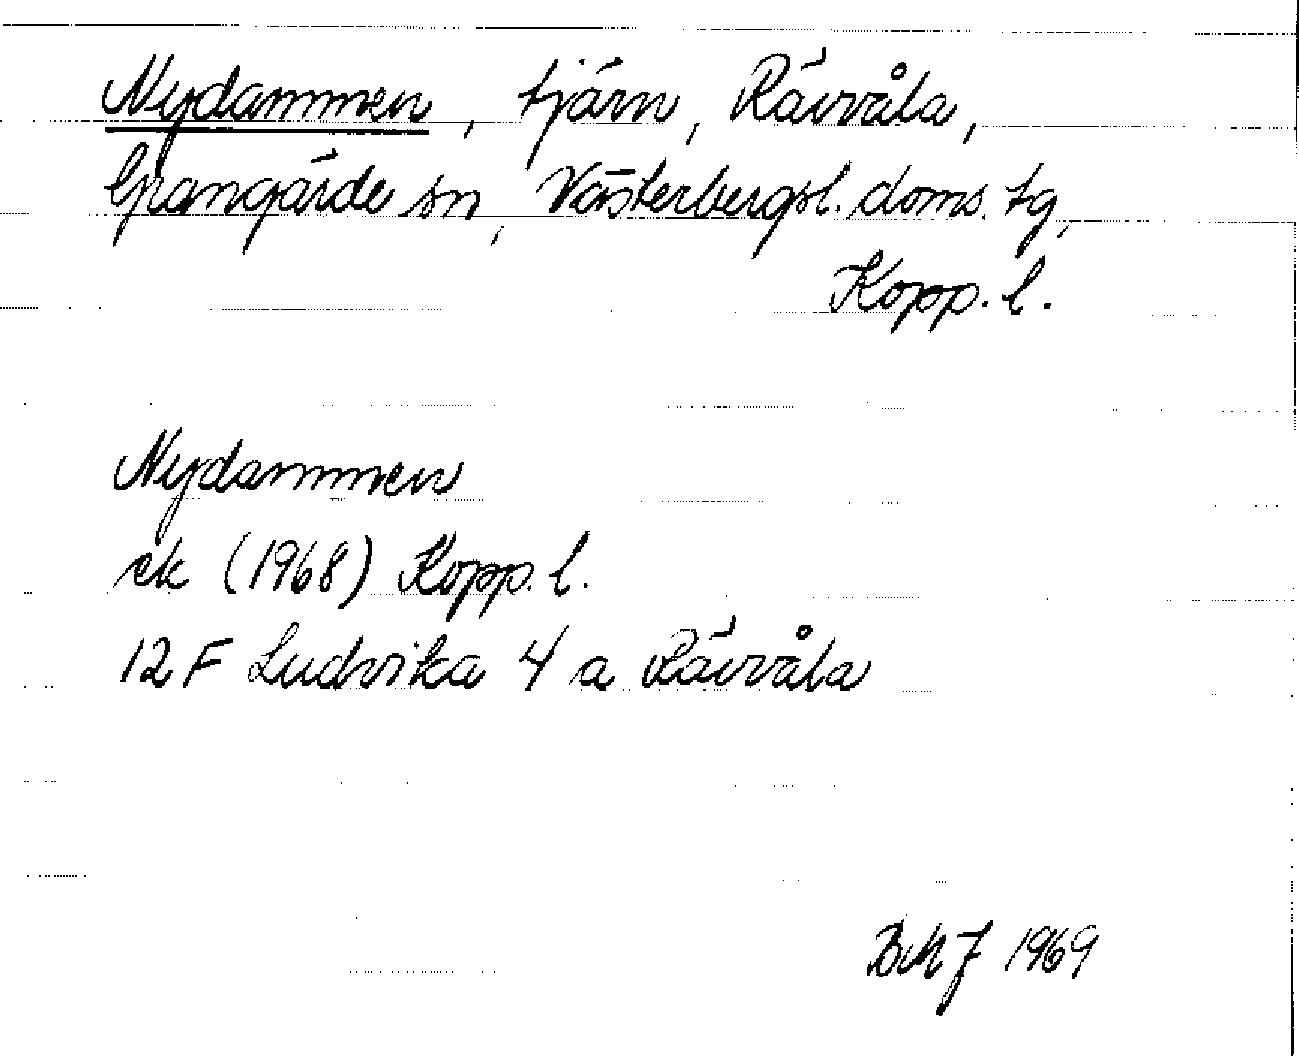 Nydammen, tjärn, Rävvåla,
Grangärde sn, Västerbergsl. doms. tg,
Kopp. l.
Nydammen
ek (1968) Kopp. l.
12 F Ludvika 4 a Rävvåla
BMJ 1969